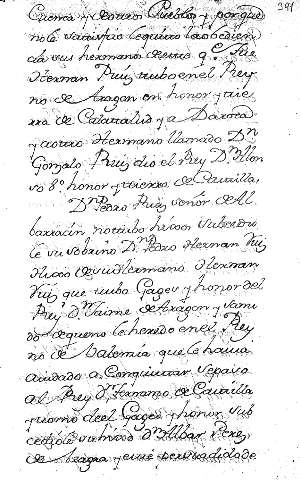 391
Cuenca y de otros Pueblos y porque
no le satisfizo le quito la obedien
cia sus hermano de este qe fue
Hernan Ruiz tubo en el Rey
no de Aragon en honor y tier
ra de Calataiud y a Daroca
y a otro Hermano llamado Dn
Gonzalo Ruiz dio el Rey Dn Alon
so 8º honor y tierra de Castilla,
Dn Pedro Ruiz señor de Al
barracin no tubo hixos subcedio
le su sobrino Dn Pedro Hernan
hixo de su Hermano Hernan
Ruiz que tubo Gages y honor del
Rey Dn Jaime de Aragon y
do de que no le heredo en el Rey
no de Valencia que le havia
aiudado a Conquistar se paso
al Rey Dn Fernando de Castilla
y tomo de el Gages y honor sub
cediole su hixo Dn Albar Perez
de Azagra y este